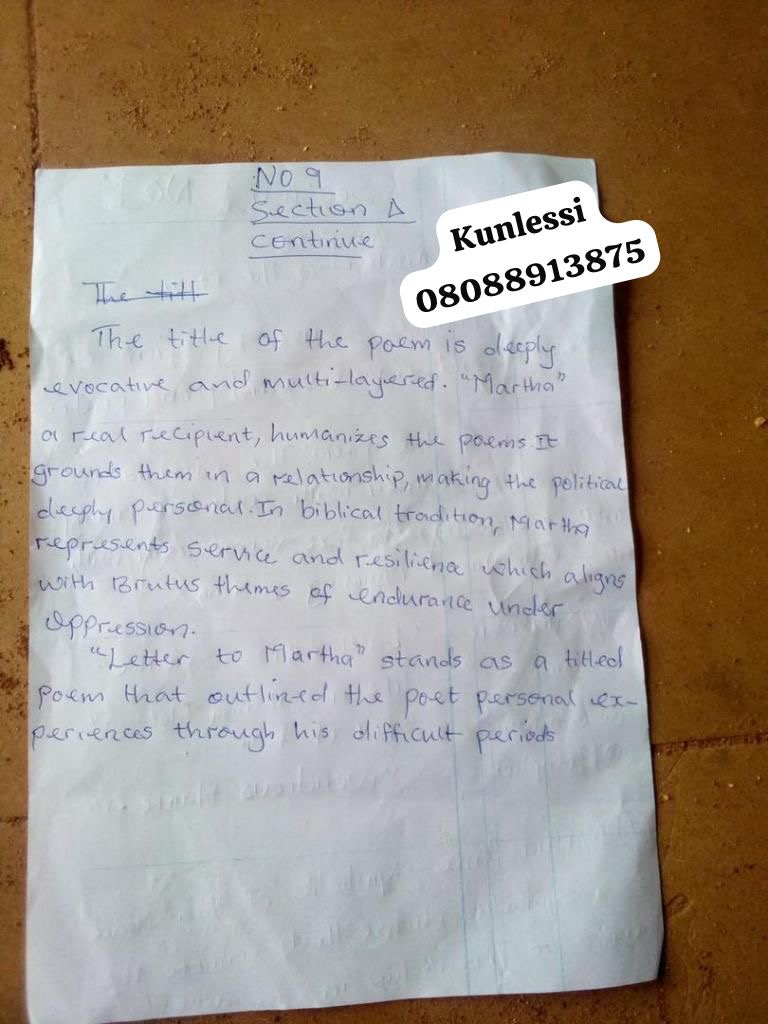 NO 9
Section A
Continue
Kunlessi
08088913875
The titl
The title of the poem is deeply
evocative and multi-layered. "Martha"
a real recipient, humanizes the poems. It
grounds them in a relationship, making the political
deeply personal. In biblical tradition, Martha
represents service and resilience which aligns
with Brutus themes of endurance under
oppression.
"Letter to Martha" stands as a titled
poem that outlined the poet personal ex-
periences through his difficult periods